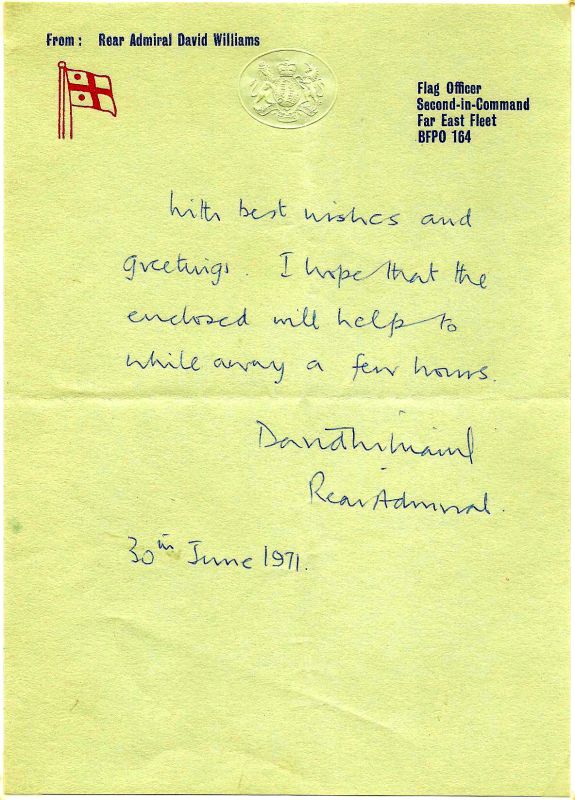 From: Rear Admiral David Williams
Flag Officer
Second-in-Command
Far East Fleet
BFPO 164
With best wishes and
greetings. I hope that the
enclosed will help to
while away a few hours.
David Williams
Rear Admiral.
30th June 1971.